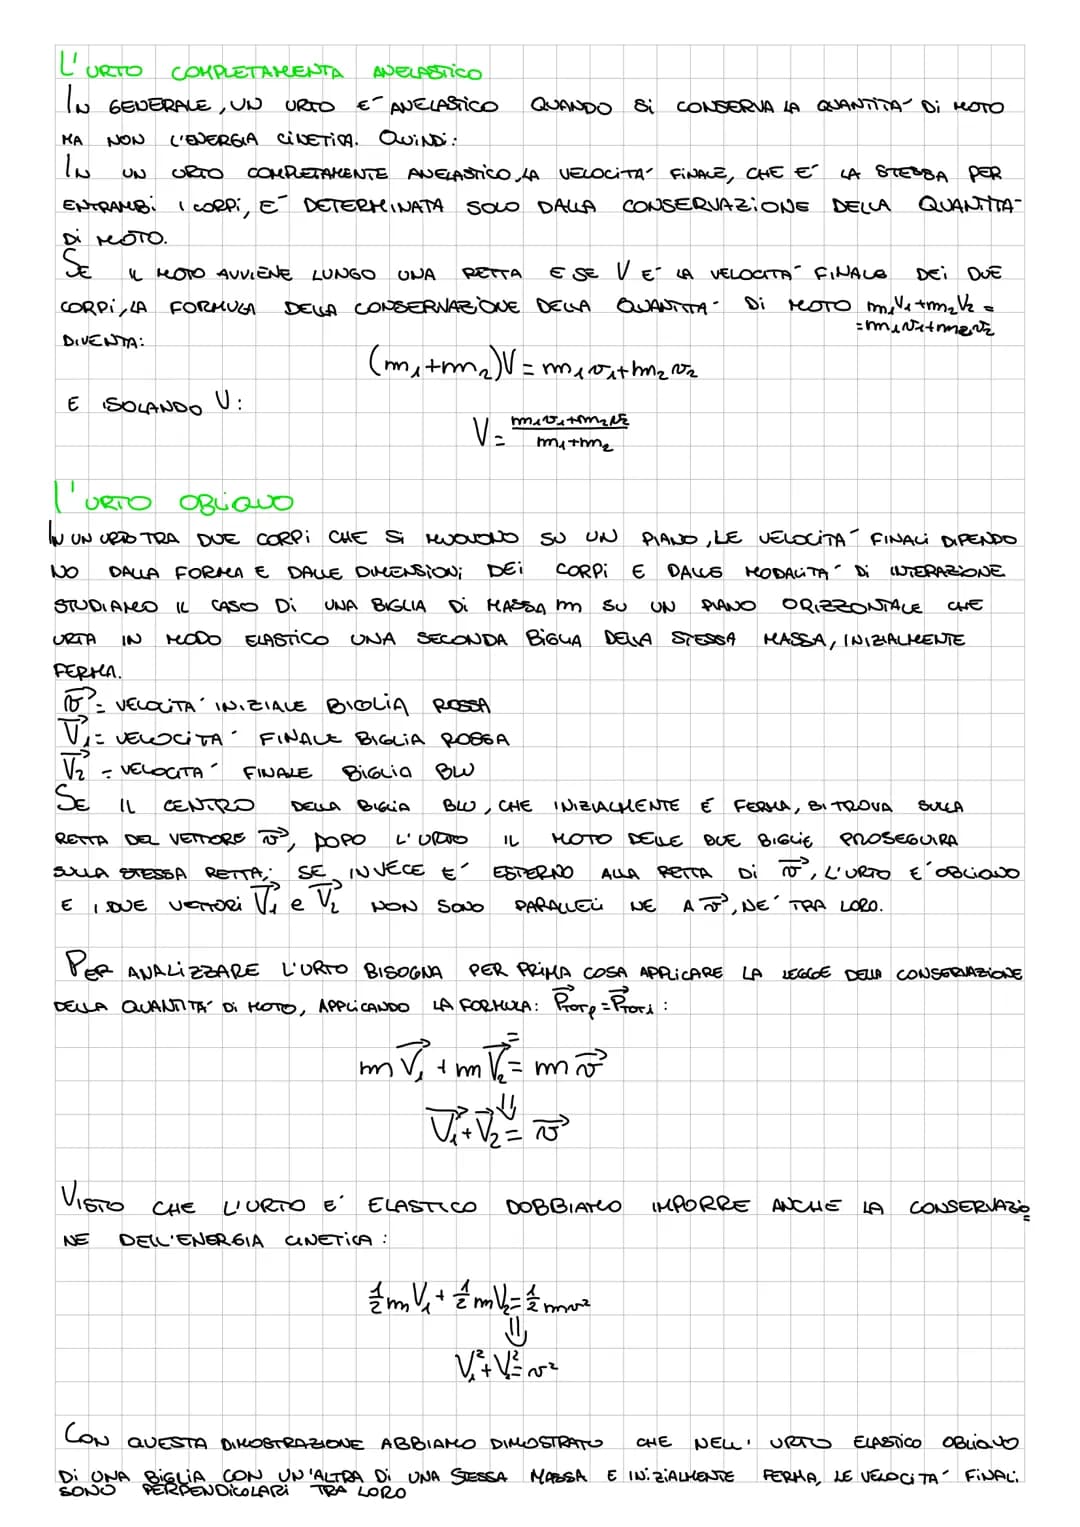 L'URTO COMPLETAMENTA ANELASTICO
IN GENERALE, UN URTO E´ ANELASTICO QUANDO Si CONSERVA LA QUANTITA´ Di MOTO
MA NON L'ENERGIA CiNETICA. QUINDi:
IN UN URTO COMPLETAMENTE ANELASTICO, LA VELOCITA´ FINALE, CHE E´ LA STESSA PER
ENTRAMBi I CORPi, E´ DETERMINATA SOLO DALLA CONSERVAZIONE DELLA QUANTITA´
Di MOTO.
SE IL MOTO AVVIENE LUNGO UNA RETTA E SE V E´ LA VELOCITA´ FINALE DEi DUE
CORPi, LA FORMULA DELLA CONSERVAZIONE DELLA QUANTITA´ Di MOTO m₁V₁+m₂V₂ =
=m₁v₁+m₂v₂
DIVENTA:
(m₁+m₂)V = m₁v₁+m₂v₂
E ISOLANDO V:
V = (m₁v₁+m₂v₂)/(m₁+m₂)
L'URTO OBLIQUO
IN UN URTO TRA DUE CORPi CHE Si MUOVONO SU UN PIANO, LE VELOCITA´ FINALi DIPENDO
NO DALLA FORMA E DALLE DIMENSIONi DEi CORPi E DALLE MODALITA´ Di INTERAZIONE
STUDIAMO IL CASO Di UNA BIGLIA Di MASSA m SU UN PIANO ORIZZONTALE CHE
URTA IN MODO ELASTICO UNA SECONDA BIGLIA DELLA STESSA MASSA, INIZIALMENTE
FERMA.
v⃗ = VELOCITA´ INIZIALE BIGLIA ROSSA
V⃗₁ = VELOCITA´ FINALE BIGLIA ROSSA
V⃗₂ = VELOCITA´ FINALE BIGLIA BLU
SE IL CENTRO DELLA BIGLIA BLU, CHE INIZIALMENTE É FERMA, Si TROVA SULLA
RETTA DEL VETTORE v⃗, DOPO L'URTO IL MOTO DELLE DUE BIGLIE PROSEGUIRA
SULLA STESSA RETTA; SE INVECE E´ ESTERNO ALLA RETTA Di v⃗, L'URTO E´ OBLIQUO
E I DUE VETTORi V⃗₁ e V⃗₂ NON SONO PARALLELi NE A v⃗, NE´ TRA LORO.
PER ANALIZZARE L'URTO BISOGNA PER PRIMA COSA APPLICARE LA LEGGE DELLA CONSERVAZIONE
DELLA QUANTITA´ Di MOTO, APPLICANDO LA FORMULA: P⃗TOTF = P⃗TOTi :
mV⃗₁ + mV⃗₂ = mv⃗
⇓
V⃗₁ + V⃗₂ = v⃗
VISTO CHE L'URTO E´ ELASTICO DOBBIAMO IMPORRE ANCHE LA CONSERVAZIO
NE DELL'ENERGIA CINETICA:
½mV₁ + ½mV₂ = ½mv²
⇓
V₁² + V₂² = v²
CON QUESTA DIMOSTRAZIONE ABBIAMO DIMOSTRATO CHE NELL' URTO ELASTICO OBLIQUO
Di UNA BIGLIA CON UN'ALTRA Di UNA STESSA MASSA E INIZIALMENTE FERMA, LE VELOCITA´ FINALi
SONO PERPENDICOLARI TRA LORO